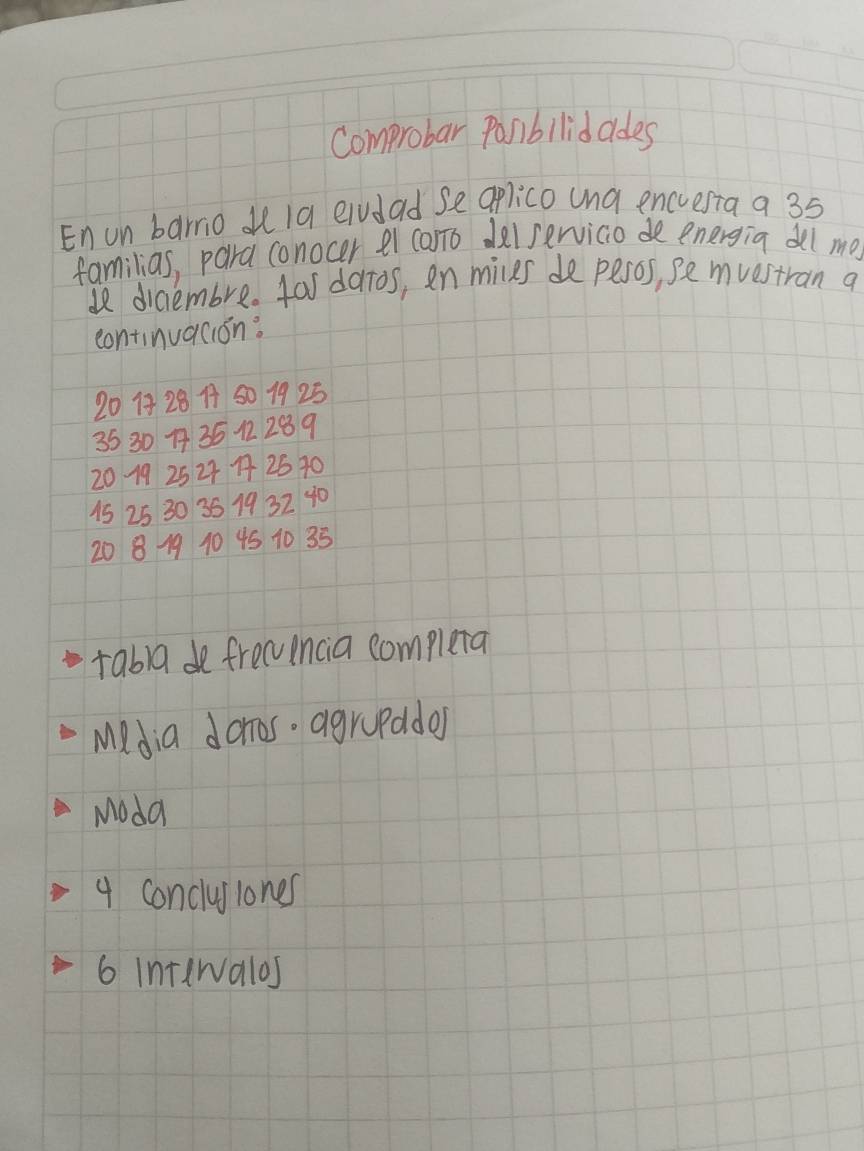 Comprobar Posibilidades
En un barrio de la ciudad se aplico una encuesta a 35
familias, para conocer el costo del servicio de energia del mes
de diciembre. Los datos, en miles de pesos, se muestran a
continuación:
20 17 28 17 50 19 25
35 30 17 35 12 28 9
20 19 25 27 17 25 70
15 25 30 35 19 32 40
20 8 19 10 45 10 35
tabla de frecuencia completa
Media datos. agrupados
Moda
4 conclusiones
6 intervalos